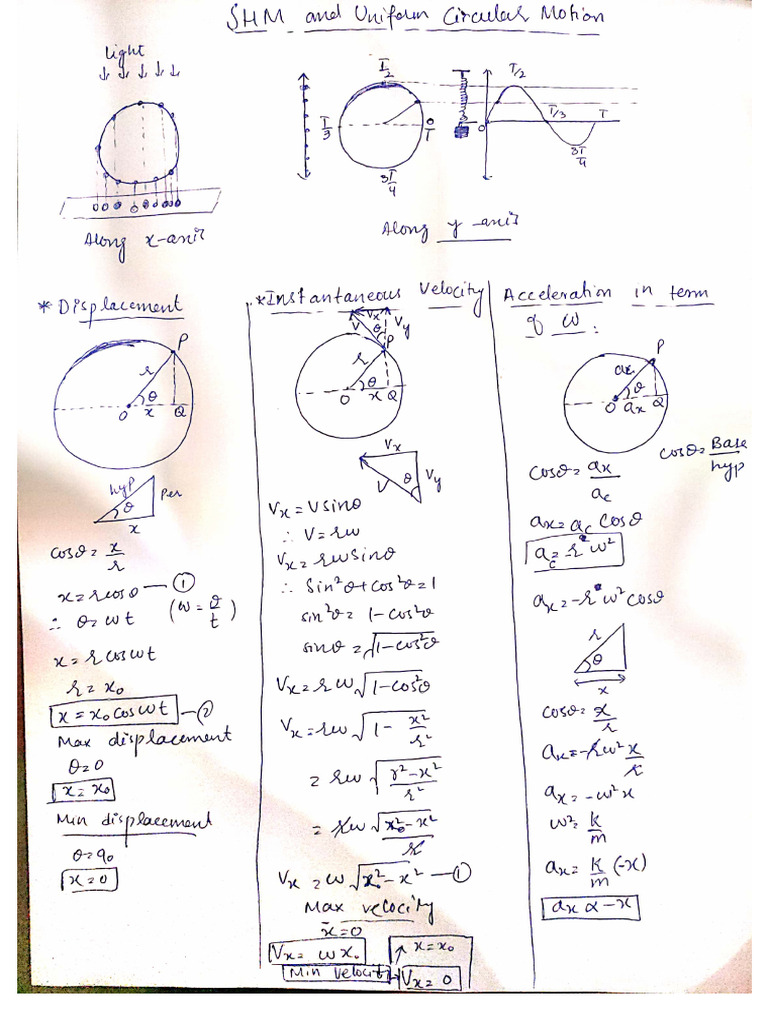 SHM and Uniform Circular Motion
Light
Along x-axis
T/2
T/3
T
3T/4
T/2
T/3
T
0
3T/4
Along y-axis
* Displacement
P
r
θ
O x Q
hyp
Per
θ
x
cosθ = x/r
x = r cosθ — ①
∴ θ = ωt (ω = θ/t)
x = r cosωt
r = x₀
x = x₀ cosωt — ②
Max displacement
θ = 0
x = x₀
Min displacement
θ = 90
x = 0
* Instantaneous Velocity
Vx
V θ Vy
P
r
θ
O x Q
Vx
V θ Vy
Vx = V sinθ
∴ V = rω
Vx = rω sinθ
∴ Sin²θ + cos²θ = 1
sin²θ = 1 - cos²θ
sinθ = √1 - cos²θ
Vx = rω √1 - cos²θ
Vx = rω √1 - x²/r²
= rω √r² - x²/r²
= rω √x₀² - x²/r
Vx = ω √x₀² - x² — ①
Max velocity
x = 0
Vx = ω x₀
Min velocity
x = x₀
Vx = 0
Acceleration in term
of ω :
P
ac
θ
O ax Q
cosθ = Base/hyp
cosθ = ax/ac
ax = ac cosθ
ac = r ω²
ax = -r ω² cosθ
r
θ
x
cosθ = x/r
ax = -rω² x/r
ax = -ω² x
ω² = k/m
ax = k/m (-x)
ax α -x